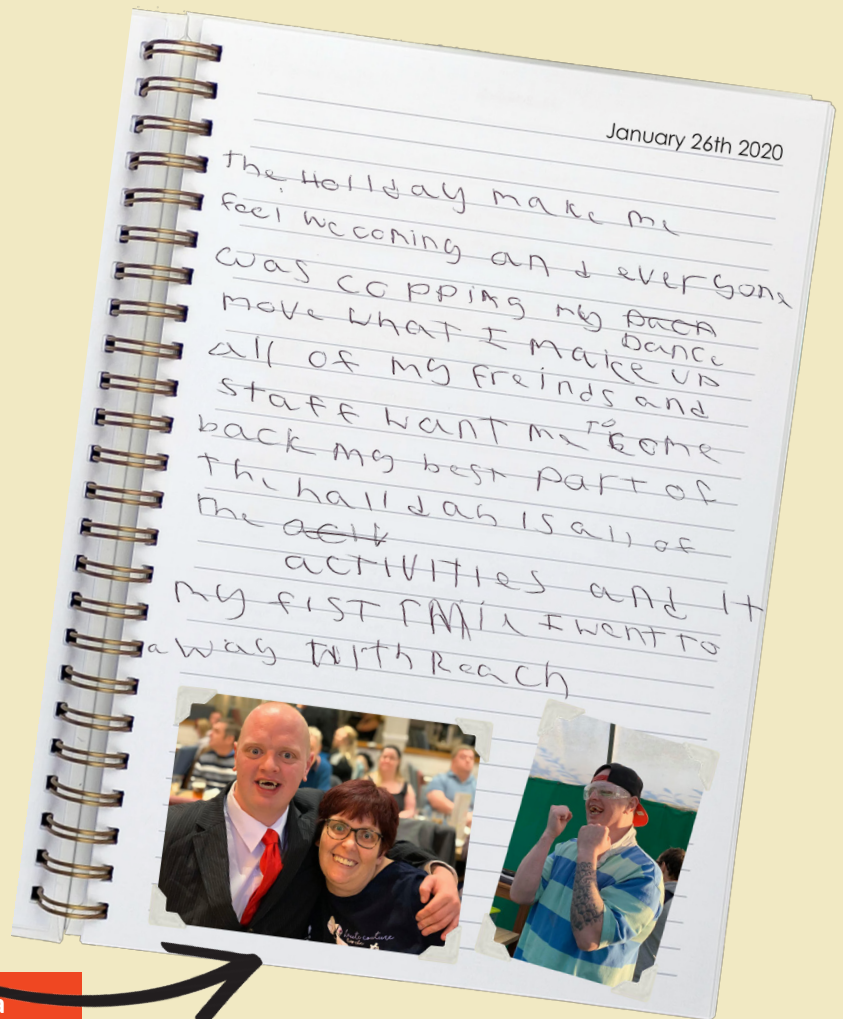 January 26th 2020
the Holliday make me
feel wecoming and everyone
was copping my
Dance
move what I make up
all of my freinds and
staff want me to come
back my best part of
the halliday is all of
the
activities and it
my fist I went to
a way with Reach
haute couture
a